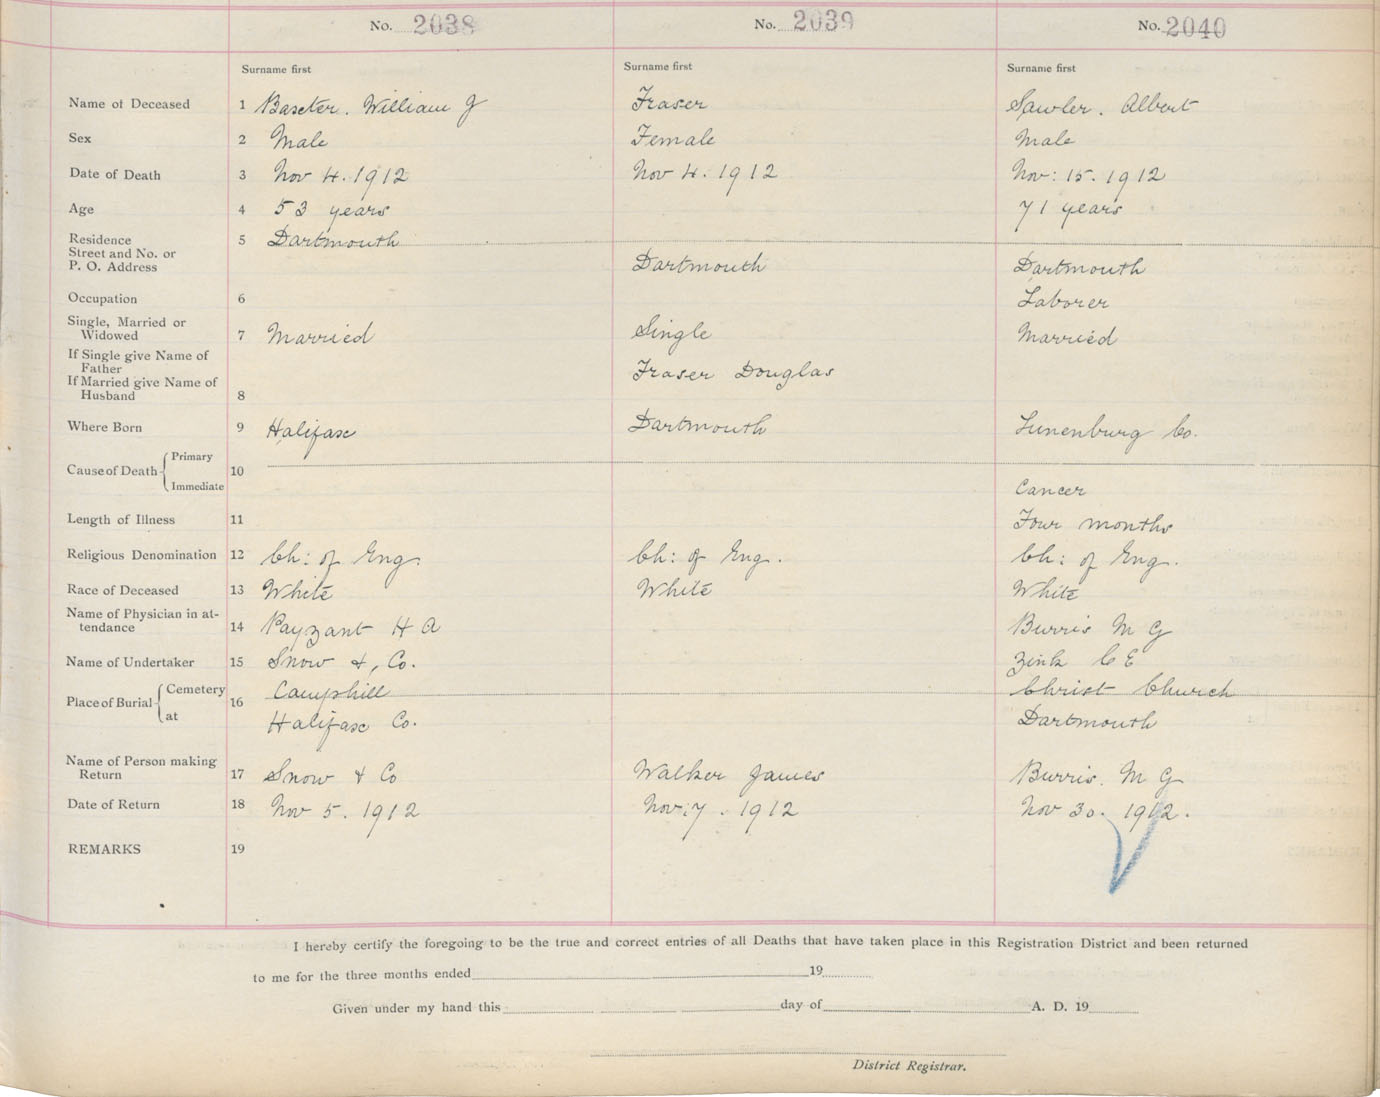 No. 2038 No. 2039 No. 2040
Surname first Surname first Surname first
Name of Deceased 1 Baxter. William J Fraser Sawler. Albert
Sex 2 Male Female Male
Date of Death 3 Nov 4. 1912 Nov 4. 1912 Nov: 15. 1912
Age 4 53 years 71 years
Residence 5 Dartmouth
Street and No. or
P. O. Address Dartmouth Dartmouth
Occupation 6 Laborer
Single, Married or
Widowed 7 Married Single Married
If Single give Name of
Father Fraser Douglas
If Married give Name of
Husband 8
Where Born 9 Halifax Dartmouth Lunenburg Co.
Cause of Death Primary 10
Immediate Cancer
Length of Illness 11 Four months
Religious Denomination 12 Ch: of Eng. Ch: of Eng. Ch: of Eng.
Race of Deceased 13 White White White
Name of Physician in at-
tendance 14 Payzant H A Burris M G
Name of Undertaker 15 Snow &, Co. Zink C E
Place of Burial Cemetery 16 Camphill Christ Church
at Halifax Co. Dartmouth
Name of Person making
Return 17 Snow & Co Walker James Burris. M G
Date of Return 18 Nov 5. 1912 Nov: 7. 1912 Nov 30. 1912.
REMARKS 19
I hereby certify the foregoing to be the true and correct entries of all Deaths that have taken place in this Registration District and been returned
to me for the three months ended 19
Given under my hand this day of A. D. 19
District Registrar.